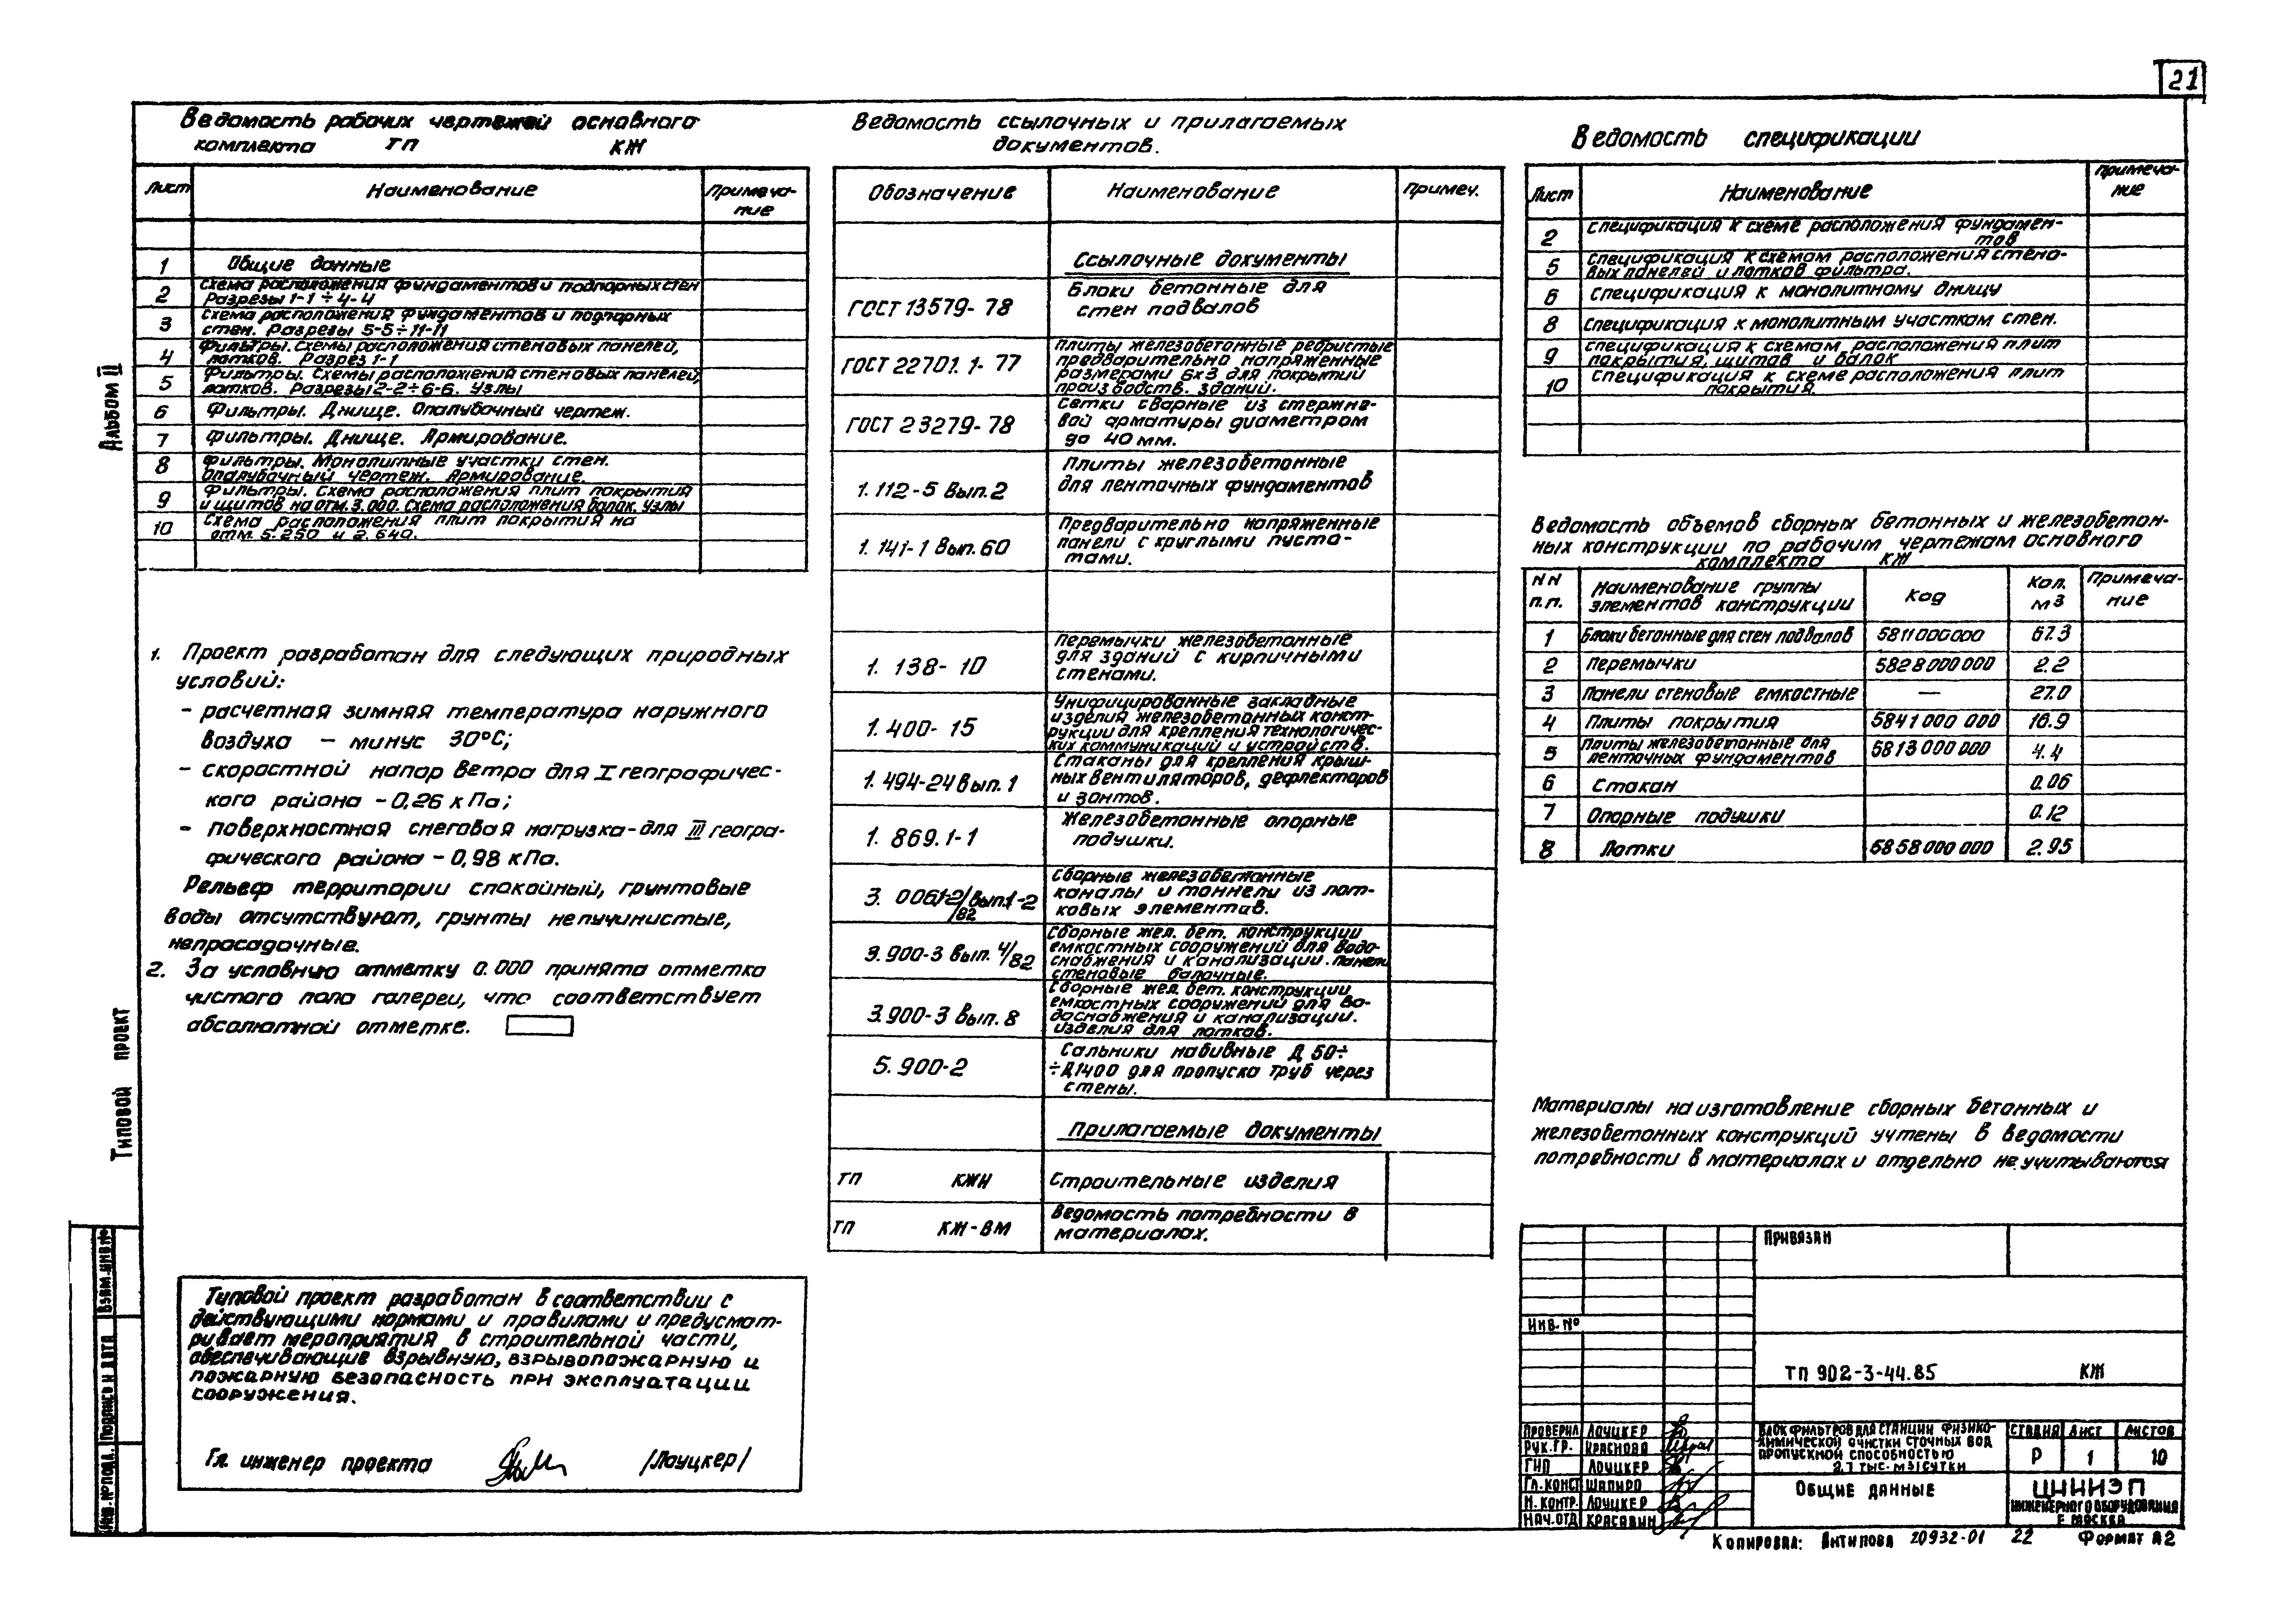 21
Ведомость рабочих чертежей основного
комплекта ТП КЖ
Лист Наименование Примеча-
ние
1 Общие данные
2 Схема расположения фундаментов и подпорных стен
Разрезы 1-1 ÷ 4-4
3 Схема расположения фундаментов и подпорных
стен. Разрезы 5-5÷11-11
4 Фильтры. Схемы расположения стеновых панелей,
лотков. Разрез 1-1
5 Фильтры. Схемы расположения стеновых панелей,
лотков. Разрезы 2-2÷6-6. Узлы
6 Фильтры. Днище. Опалубочный чертеж.
7 Фильтры. Днище. Армирование.
8 Фильтры. Монолитные участки стен.
Опалубочный чертеж. Армирование.
9 Фильтры. Схема расположения плит покрытия
и щитов на отм. 3.000. Схема расположения балок. Узлы
10 Схема расположения плит покрытия на
отм. 5.250 и 2.640.
1. Проект разработан для следующих природных
условий:
- расчетная зимняя температура наружного
воздуха – минус 30°С;
- скоростной напор ветра для I географичес-
кого района - 0,26 кПа;
- поверхностная снеговая нагрузка - для III геогра-
фического района - 0,98 кПа.
Рельеф территории спокойный, грунтовые
воды отсутствуют, грунты непучинистые,
непросадочные.
2. За условную отметку 0.000 принята отметка
чистого пола галереи, что соответствует
абсолютной отметке.
Типовой проект разработан в соответствии с
действующими нормами и правилами и предусмат-
ривает мероприятия в строительной части,
обеспечивающие взрывную, взрывопожарную и
пожарную безопасность при эксплуатации
сооружения.
Гл. инженер проекта /Лоуцкер/
Ведомость ссылочных и прилагаемых
документов.
Обозначение Наименование Примеч.
Ссылочные документы
ГОСТ 13579-78 Блоки бетонные для
стен подвалов
ГОСТ 22701.1-77 Плиты железобетонные ребристые
предварительно напряженные
размерами 6х3 для покрытий
произбодств. зданий.
ГОСТ 23279-78 Сетки сварные из стержне-
вой арматуры диаметром
до 40 мм.
1.112-5 Вып.2 Плиты железобетонные
для ленточных фундаментов
1.141-1 Вып.60 Предварительно напряженные
панели с круглыми пусто-
тами.
1.138-10 Перемычки железобетонные
для зданий с кирпичными
стенами.
1.400-15 Унифицированные закладные
изделия железобетонных конст-
рукции для крепления технологичес-
ких коммуникаций и устройств.
1.494-24 вып.1 Стаканы для крепления крыш-
ных вентиляторов, дефлекторов
и зонтов.
1.869.1-1 Железобетонные опорные
подушки.
3.006.1-2/82 вып.1-2 Сборные железобетонные
каналы и тоннели из лот-
ковых элементов.
3.900-3 Вып. 4/82 Сборные жел. бет. конструкции
емкостных сооружений для водо-
снабжения и канализации. Панели
стеновые балочные.
3.900-3 Вып.8 Сборные жел. бет. конструкции
емкостных сооружений для во-
доснабжения и канализации.
Изделия для лотков.
5.900-2 Сальники набивные Д 50÷
÷Д1400 для пропуска труб через
стены.
Прилагаемые документы
ТП КЖИ Строительные изделия
ТП КЖ-ВМ Ведомость потребности в
материалах.
Ведомость спецификации
Лист Наименование Примеча-
ние
2 Спецификация к схеме расположения фундамен-
тов
5 Спецификация к схемам расположения стено-
вых панелей и лотков фильтра.
6 Спецификация к монолитному днищу
8 Спецификация к монолитным участкам стен.
9 Спецификация к схемам расположения плит
покрытия, щитов и балок
10 Спецификация к схеме расположения плит
покрытия.
Ведомость объемов сборных бетонных и железобетон-
ных конструкции по рабочим чертежам основного
комплекта КЖ
NN п.п. Наименование группы элементов конструкции Код Кол. м3 Примеча-
ние
1 Блоки бетонные для стен подвалов 5811000000 67.3
2 Перемычки 5828000000 2.2
3 Панели стеновые емкостные — 27.0
4 Плиты покрытия 5841000000 16.9
5 Плиты железобетонные для
ленточных фундаментов 5813000000 4.4
6 Стакан 0.06
7 Опорные подушки 0.12
8 Лотки 5858000000 2.95
Материалы на изготовление сборных бетонных и
железобетонных конструкций учтены в ведомости
потребности в материалах и отдельно не учитываются
Привязан
Инв. №
ТП 902-3-44.85 КЖ
Проверил Лоуцкер
Рук.гр. Краснова
ГИП Лоуцкер
Гл.конст Шапиро
Н.контр. Лоуцкер
Нач.отд Красавин
Блок фильтров для станции физико-
химической очистки сточных вод
пропускной способностью
2,7 тыс. м3/сутки
Стадия Лист Листов
Р 1 10
Общие данные
ЦНИИЭП
инженерного оборудования
г. Москва
Копировал: Антипова 20932-01 22 Формат А2
Альбом II
Типовой проект
Взам.инв.№
Подпись и дата
Инв.№ подл.